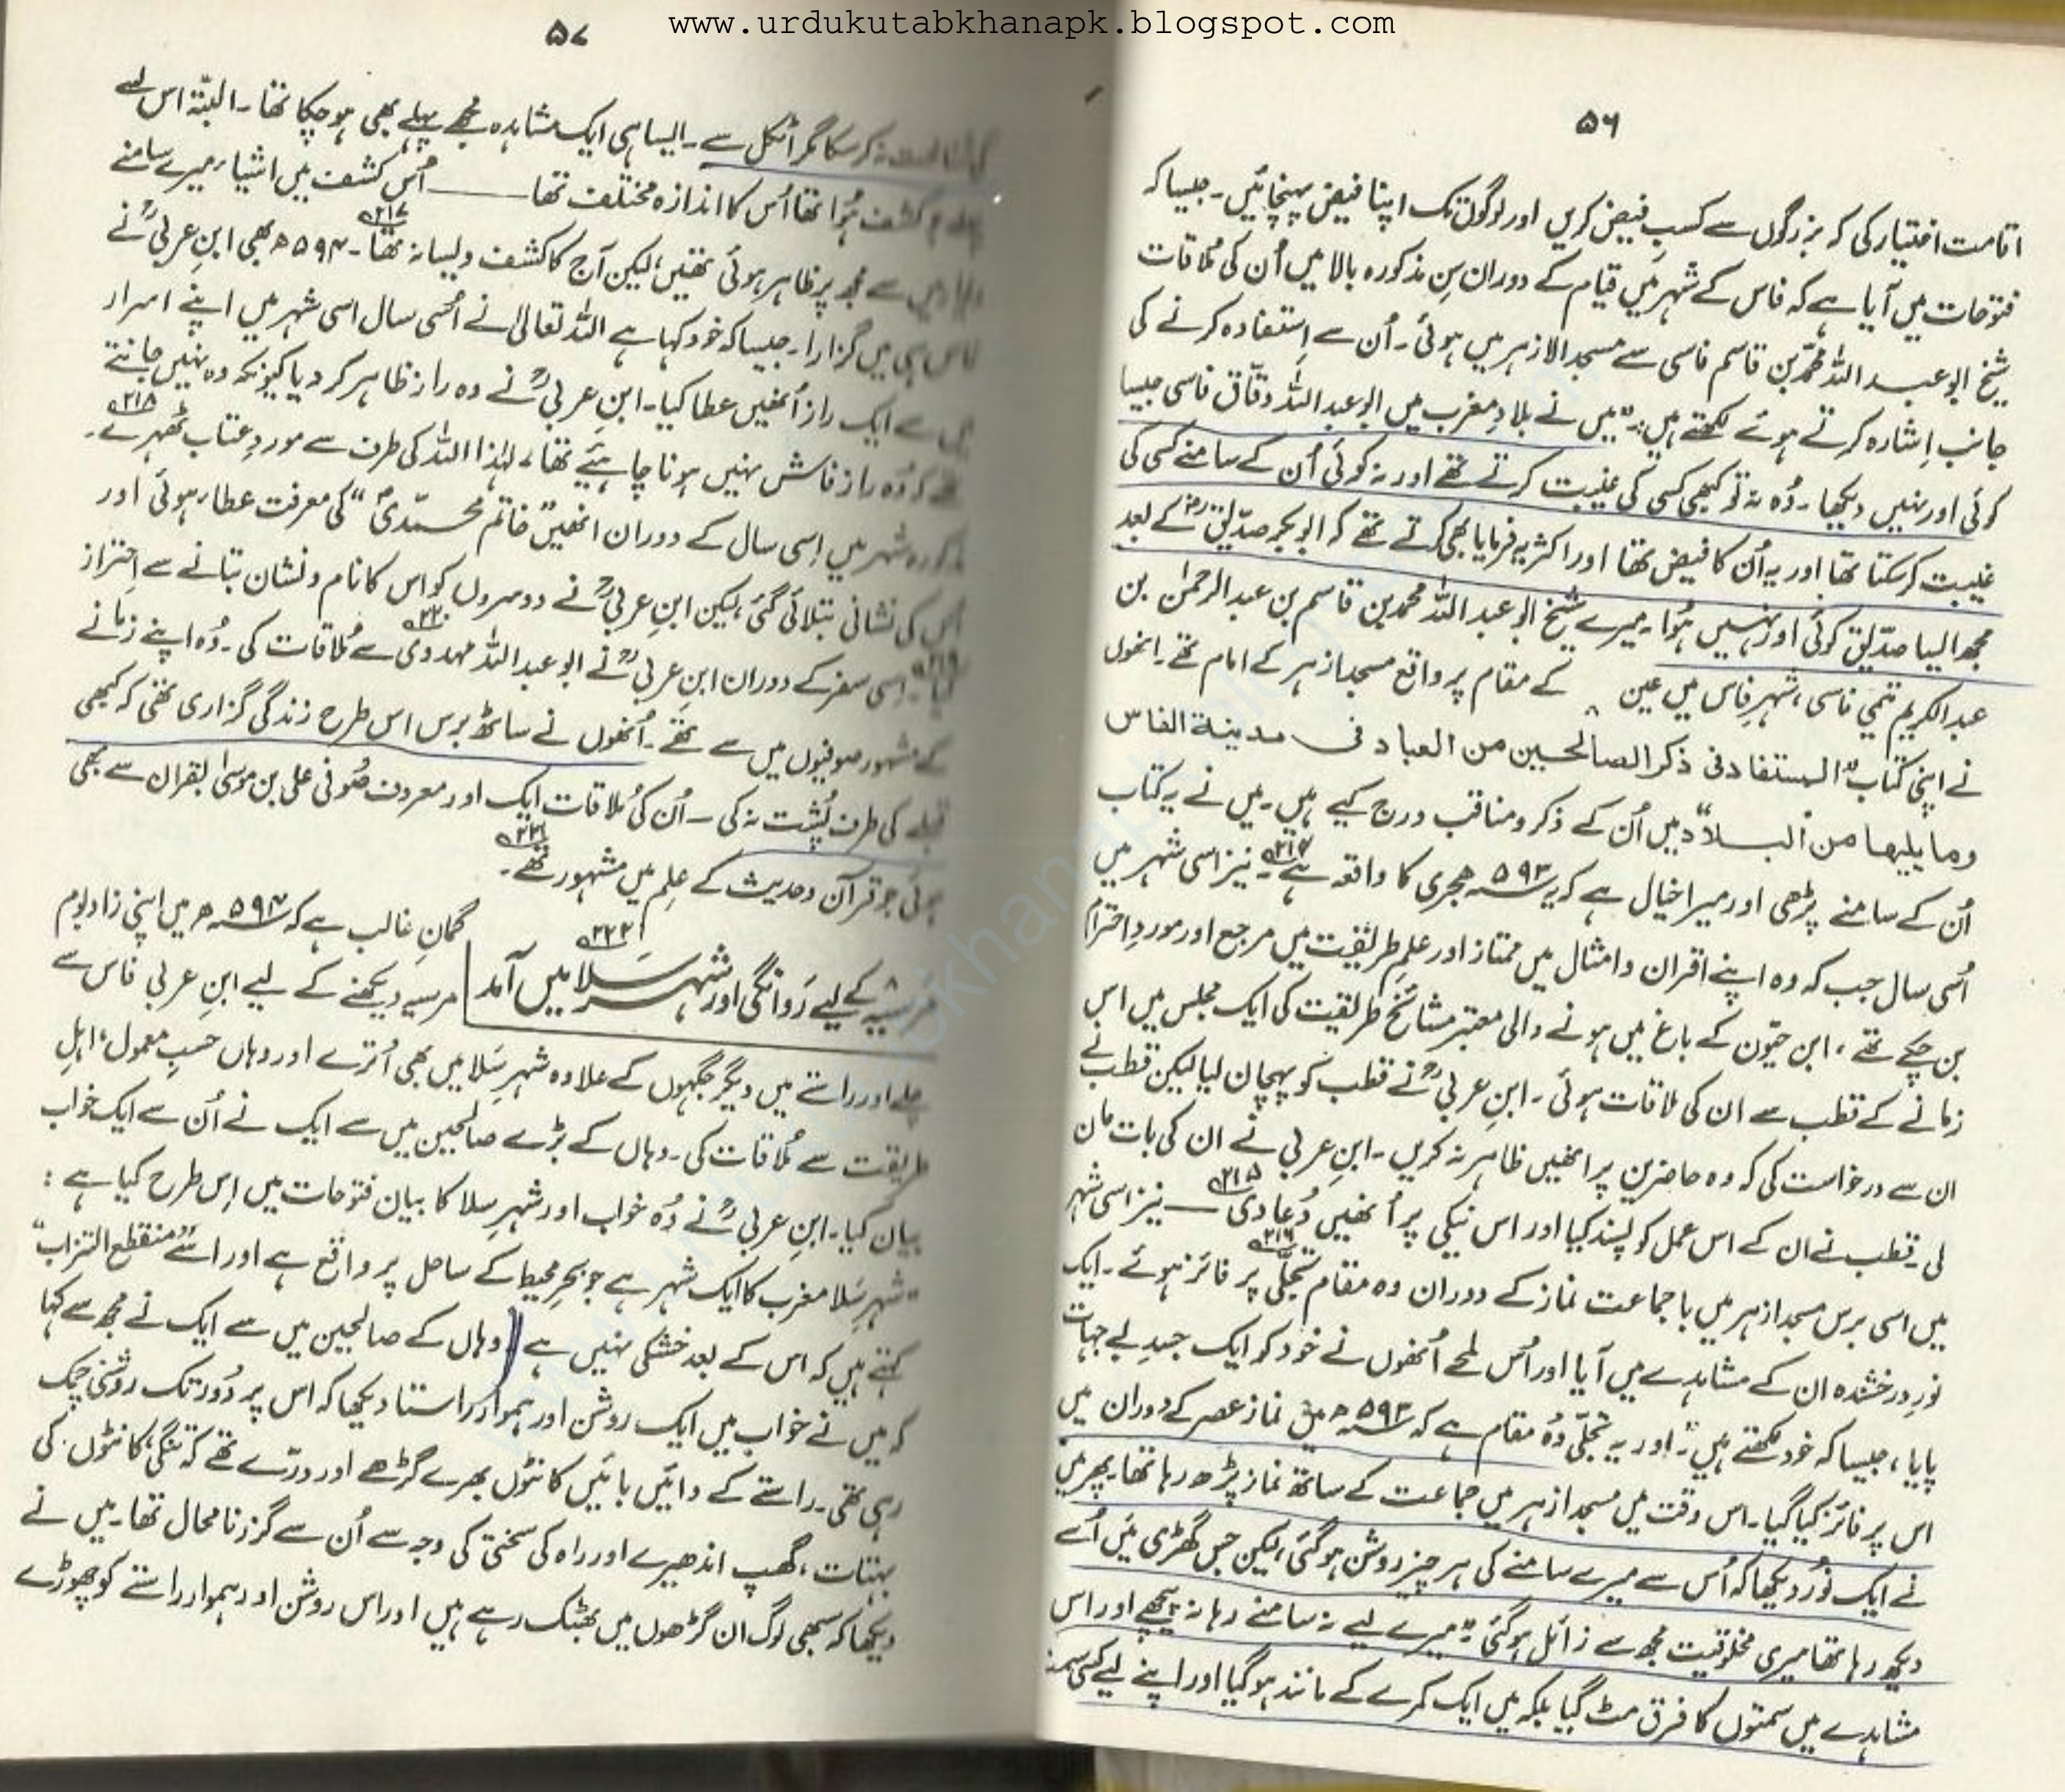 www.urdukutabkhanapk.blogspot.com
۵۶
اقامت اختیار کی کہ بزرگوں سے کسبِ فیض کریں اور لوگوں تک اپنا فیض پہنچائیں۔ جیسا کہ
فتوحات میں آیا ہے کہ فاس کے شہر میں قیام کے دوران سِن مذکورہ بالا میں اُن کی ملاقات
شیخ ابو عبد اللہ محمد بن قاسم فاسی سے مسجد الازہر میں ہوئی۔ اُن سے اِستفادہ کرنے کی
جانب اِشارہ کرتے ہوئے لکھتے ہیں: ”میں نے بلادِ مغرب میں ابو عبد اللہ دقّاق فاسی جیسا
کوئی اور نہیں دیکھا۔ وُہ نہ تو کبھی کسی کی غیبت کرتے تھے اور نہ کوئی اُن کے سامنے کسی کی
غیبت کر سکتا تھا اور یہ اُن کا فیض تھا اور اکثر یہ فرمایا بھی کرتے تھے کہ ابو بکر صدّیقؓ کے بعد
مجھ ایسا صدّیق کوئی اور نہیں ہُوا۔ میرے شیخ ابو عبد اللہ محمد بن قاسم بن عبد الرحمٰن بن
عبد الکریم تمیمی فاسی، شہرِ فاس میں عین کے مقام پر واقع مسجد ازہر کے امام تھے۔ انھوں
نے اپنی کتاب ”المستفاد فی ذکر الصالحین من العباد فی مدینة الفاس
وما یلیھا من البلاد“ میں اُن کے ذکر و مناقب درج کیے ہیں۔ میں نے یہ کتاب
اُن کے سامنے پڑھی اور میرا خیال ہے کہ یہ ۵۹۳ ہجری کا واقعہ ہے۔ ۲۱۴ نیز اسی شہر میں
اُسی سال جب کہ وہ اپنے اقران و امثال میں ممتاز اور علمِ طریقت میں مرجع اور موردِ احترام
بن چکے تھے، ابن حیّون کے باغ میں ہونے والی معتبر مشائخ طریقیت کی ایک مجلس میں اس
زمانے کے قطب سے ان کی ملاقات ہوئی۔ ابنِ عربیؒ نے قطب کو پہچان لیا لیکن قطب نے
ان سے درخواست کی کہ وہ حاضرین پر انھیں ظاہر نہ کریں۔ ابنِ عربی نے ان کی بات مان
لی۔ قطب نے ان کے اس عمل کو پسند کیا اور اس نیکی پر اُنھیں دُعا دی ۲۱۵ — نیز اسی شہر
میں اسی برس مسجد ازہر میں با جماعت نماز کے دوران وہ مقام تجلّی ۲۱۶ پر فائز ہوئے۔ ایک
نورِ درخشندہ ان کے مشاہدے میں آیا اور اُس لمحے اُنھوں نے خود کو ایک جسدِ بے جہات
پایا، جیسا کہ خود لکھتے ہیں: ”اور یہ تجلّی وُہ مقام ہے کہ ۵۹۳ھ میں نماز عصر کے دوران میں
اس پر فائز کیا گیا۔ اس وقت میں مسجد ازہر میں جماعت کے ساتھ نماز پڑھ رہا تھا۔ پھر میں
نے ایک نُور دیکھا کہ اُس سے میرے سامنے کی ہر چیز روشن ہو گئی، لیکن جس گھڑی میں اُسے
دیکھ رہا تھا میری مخلوقیت مجھ سے زائل ہو گئی۔ میرے لیے نہ سامنے رہا نہ پیچھے اور اس
مشاہدے میں سمتوں کا فرق مٹ گیا بلکہ میں ایک کمرے کے مانند ہو گیا اور اپنے لیے کسی سمت
۵۷
نہ کر سکا مگر اٹکل سے۔ ایسا ہی ایک مشاہدہ مجھے پہلے بھی ہو چکا تھا۔ البتّہ اس سے
کشف ہُوا تھا اُس کا اندازہ مختلف تھا —— اُس کشف میں اشیاء میرے سامنے
سے مجھ پر ظاہر ہوئی تھیں، لیکن آج کا کشف ویسا نہ تھا۔ ۲۱۷ ۵۹۴ھ بھی ابنِ عربیؒ نے
فاس ہی میں گزارا۔ جیسا کہ خود کہا ہے اللہ تعالیٰ نے اُسی سال اسی شہر میں اپنے اسرار
میں سے ایک راز اُنھیں عطا کیا۔ ابنِ عربیؒ نے وہ راز ظاہر کر دیا کیونکہ وہ نہیں جانتے
تھے کہ وُہ راز فاش نہیں ہونا چاہیئے تھا، لہٰذا اللہ کی طرف سے موردِ عتاب ٹھہرے۔ ۲۱۸
مذکورہ شہر میں اِسی سال کے دوران انھیں ”خاتم محمّدی“ کی معرفت عطاء ہوئی اور
اُس کی نشانی بتلائی گئی، لیکن ابنِ عربیؒ نے دوسروں کو اس کا نام و نشان بتانے سے احتراز
کیا۔ ۲۱۹ اِسی سفر کے دوران ابنِ عربیؒ نے ابو عبد اللہ مہدوی ۲۲۰ سے مُلاقات کی۔ وُہ اپنے زمانے
کے مشہور صوفیوں میں سے تھے۔ اُنھوں نے ساٹھ برس اس طرح زندگی گزاری تھی کہ کبھی
قبلے کی طرف پُشت نہ کی۔ اُن کی مُلاقات ایک اور معروف صُوفی علی بن موسیٰ بقران سے بھی
ہوئی جو قرآن و حدیث کے علم میں مشہور تھے۔ ۲۲۱
مُرسِیّہ کے لیے رَوانگی اور شہر سَلا میں آمد ۲۲۲
گمانِ غالب ہے کہ ۵۹۴ھ میں اپنی زاد بوم
مرسیہ دیکھنے کے لیے ابنِ عربی فاس سے
چلے اور راستے میں دیگر جگہوں کے علاوہ شہرِ سَلا میں بھی اُترے اور وہاں حسبِ معمول، اہلِ
طریقت سے مُلاقات کی۔ وہاں کے بڑے صالحین میں سے ایک نے اُن سے ایک خواب
بیان کیا۔ ابنِ عربیؒ نے وُہ خواب اور شہرِ سلا کا بیان فتوحات میں اِس طرح کیا ہے:
”شہرِ سَلا مغرب کا ایک شہر ہے جو بحرِ محیط کے ساحل پر واقع ہے اور اسے ”منقطع التراب“
کہتے ہیں کہ اس کے بعد خشکی نہیں ہے۔ وہاں کے صالحین میں سے ایک نے مجھ سے کہا
کہ میں نے خواب میں ایک روشن اور ہموار راستا دیکھا کہ اس پر دُور تک روشنی چمک
رہی تھی۔ راستے کے دائیں بائیں کانٹوں بھرے گڑھے اور درّے تھے کہ تنگی، کانٹوں کی
بہتات، گھپ اندھیرے اور راہ کی سختی کی وجہ سے اُن سے گزرنا محال تھا۔ میں نے
دیکھا کہ سبھی لوگ ان گڑھوں میں بھٹک رہے ہیں اور اس روشن اور ہموار راستے کو چھوڑے